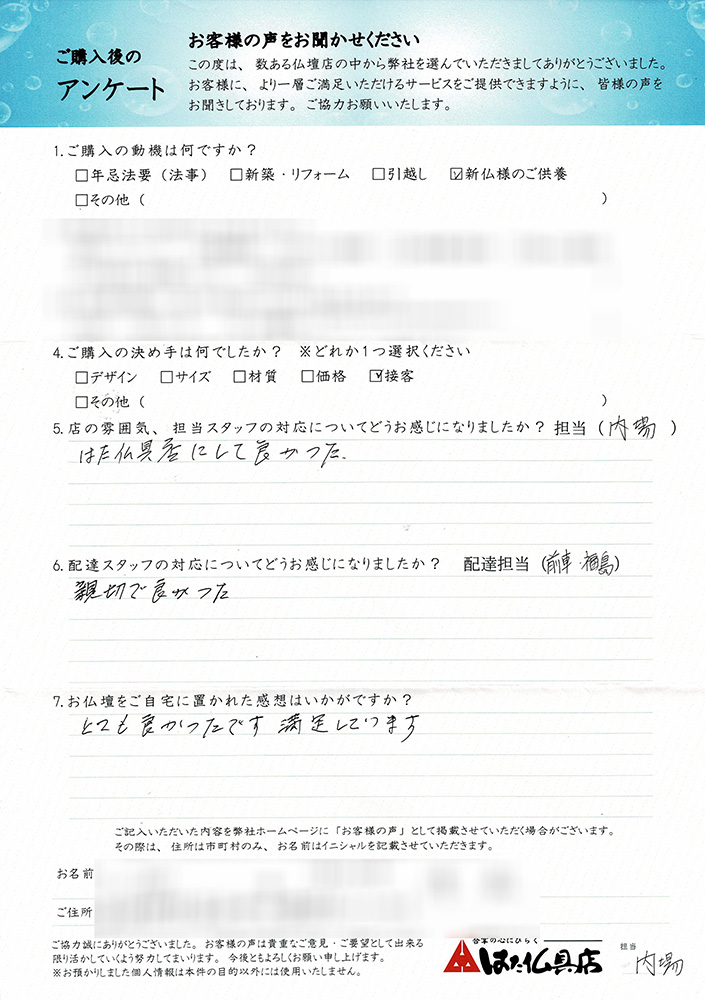 ご購入後の
アンケート
お客様の声をお聞かせください
この度は、数ある仏壇店の中から弊社を選んでいただきましてありがとうございました。
お客様に、より一層ご満足いただけるサービスをご提供できますように、皆様の声を
お聞きしております。ご協力お願いいたします。
1.ご購入の動機は何ですか？
□年忌法要（法事） □新築・リフォーム □引越し ☑新仏様のご供養
□その他（ ）
4.ご購入の決め手は何でしたか？ ※どれか1つ選択ください
□デザイン □サイズ □材質 □価格 ☑接客
□その他（ ）
5.店の雰囲気、担当スタッフの対応についてどうお感じになりましたか？担当（内場）
はた仏具店にして良かった.
6.配達スタッフの対応についてどうお感じになりましたか？ 配達担当（前車・福島）
親切で良かった
7.お仏壇をご自宅に置かれた感想はいかがですか？
とても良かったです 満足しています
ご記入いただいた内容を弊社ホームページに「お客様の声」として掲載させていただく場合がございます。
その際は、住所は市町村のみ、お名前はイニシャルを記載させていただきます。
お名前
ご住所
ご協力誠にありがとうございました。お客様の声は貴重なご意見・ご要望として出来る
限り活かしていくよう努力してまいります。今後ともよろしくお願い申し上げます。
※お預かりしました個人情報は本件の目的以外には使用いたしません。
合掌の心にひらく
はた仏具店
担当
内場